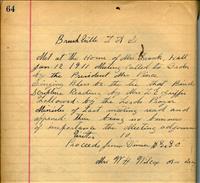 64
Brookville L A S
Met at the Home of Mrs Brook Hall
Jan 12 1911 Meeting Called to Order
by the President Mrs Price
Singing Blest be the tie that Binds
Scripture Reading by Mrs L E
followed by the Lords Prayer
Minutes of Last meeting read and
approved there being no business
of importance the Meeting adjourned
10
Proceeds from Dinner $8.80
Mrs W H